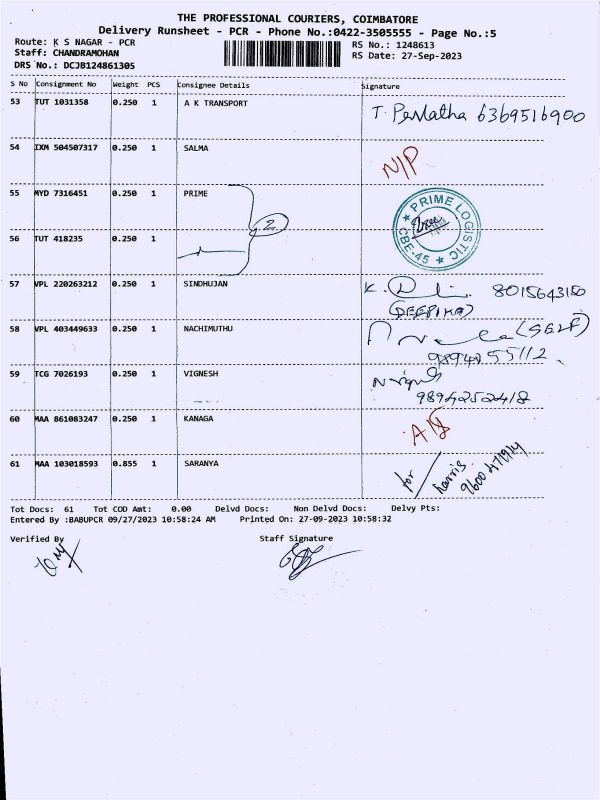 THE PROFESSIONAL COURIERS, COIMBATORE
Delivery Runsheet - PCR - Phone No.:0422-3505555 - Page No.:5
Route: K S NAGAR - PCR
RS No.: 1248613
Staff: CHANDRAMOHAN
RS Date: 27-Sep-2023
DRS No.: DCJB124861305
S No Consignment No Weight PCS Consignee Details Signature
53 TUT 1031358 0.250 1 A K TRANSPORT
6369516900
54 IXM 504507317 0.250 1 SALMA N/P
55 MYD 7316451 0.250 1 PRIME
2
PRIME LOGISTIC
CBE-45
56 TUT 418235 0.250 1
57 VPL 220263212 0.250 1 SINDHUJAN K. 8015643150
(DEEPIKA)
58 VPL 403449633 0.250 1 NACHIMUTHU (SELF)
59 TCG 7026193 0.250 1 VIGNESH
9894252418
60 MAA 861083247 0.250 1 KANAGA
61 MAA 103018593 0.855 1 SARANYA for
harris
Tot Docs: 61 Tot COD Amt: 0.00 Delvd Docs: Non Delvd Docs: Delvy Pts:
Entered By :BABUPCR 09/27/2023 10:58:24 AM Printed On: 27-09-2023 10:58:32
Verified By Staff Signature